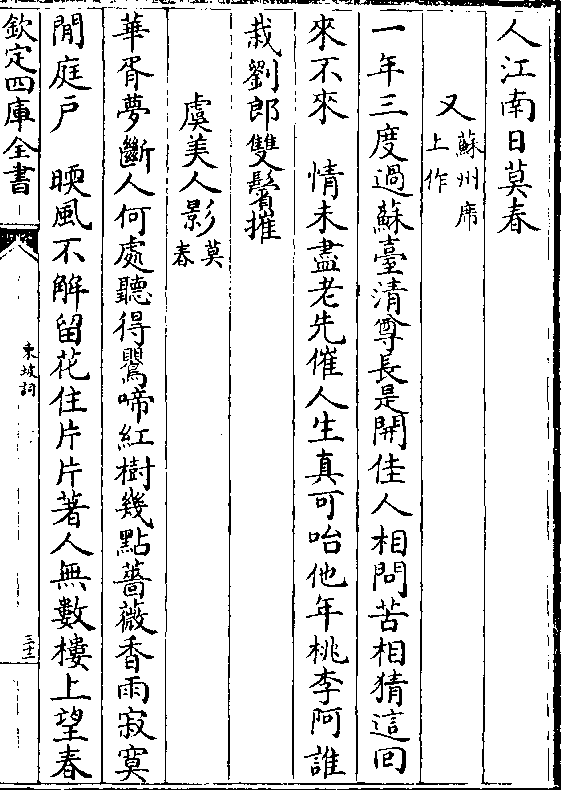 人江南日莫春
又蘇州席上作
一年三度過蘇臺清尊長是開佳人相問苦相猜這回
來不來 情未盡老先催人生真可咍他年桃李阿誰
栽劉郎雙鬢摧
虞美人影莫春
華胥夢斷人何處聽得鸎啼紅樹幾點薔薇香雨寂寞
閒庭戶 暖風不解留花住片片著人無數樓上望春
欽定四庫全書
東坡詞
三十二